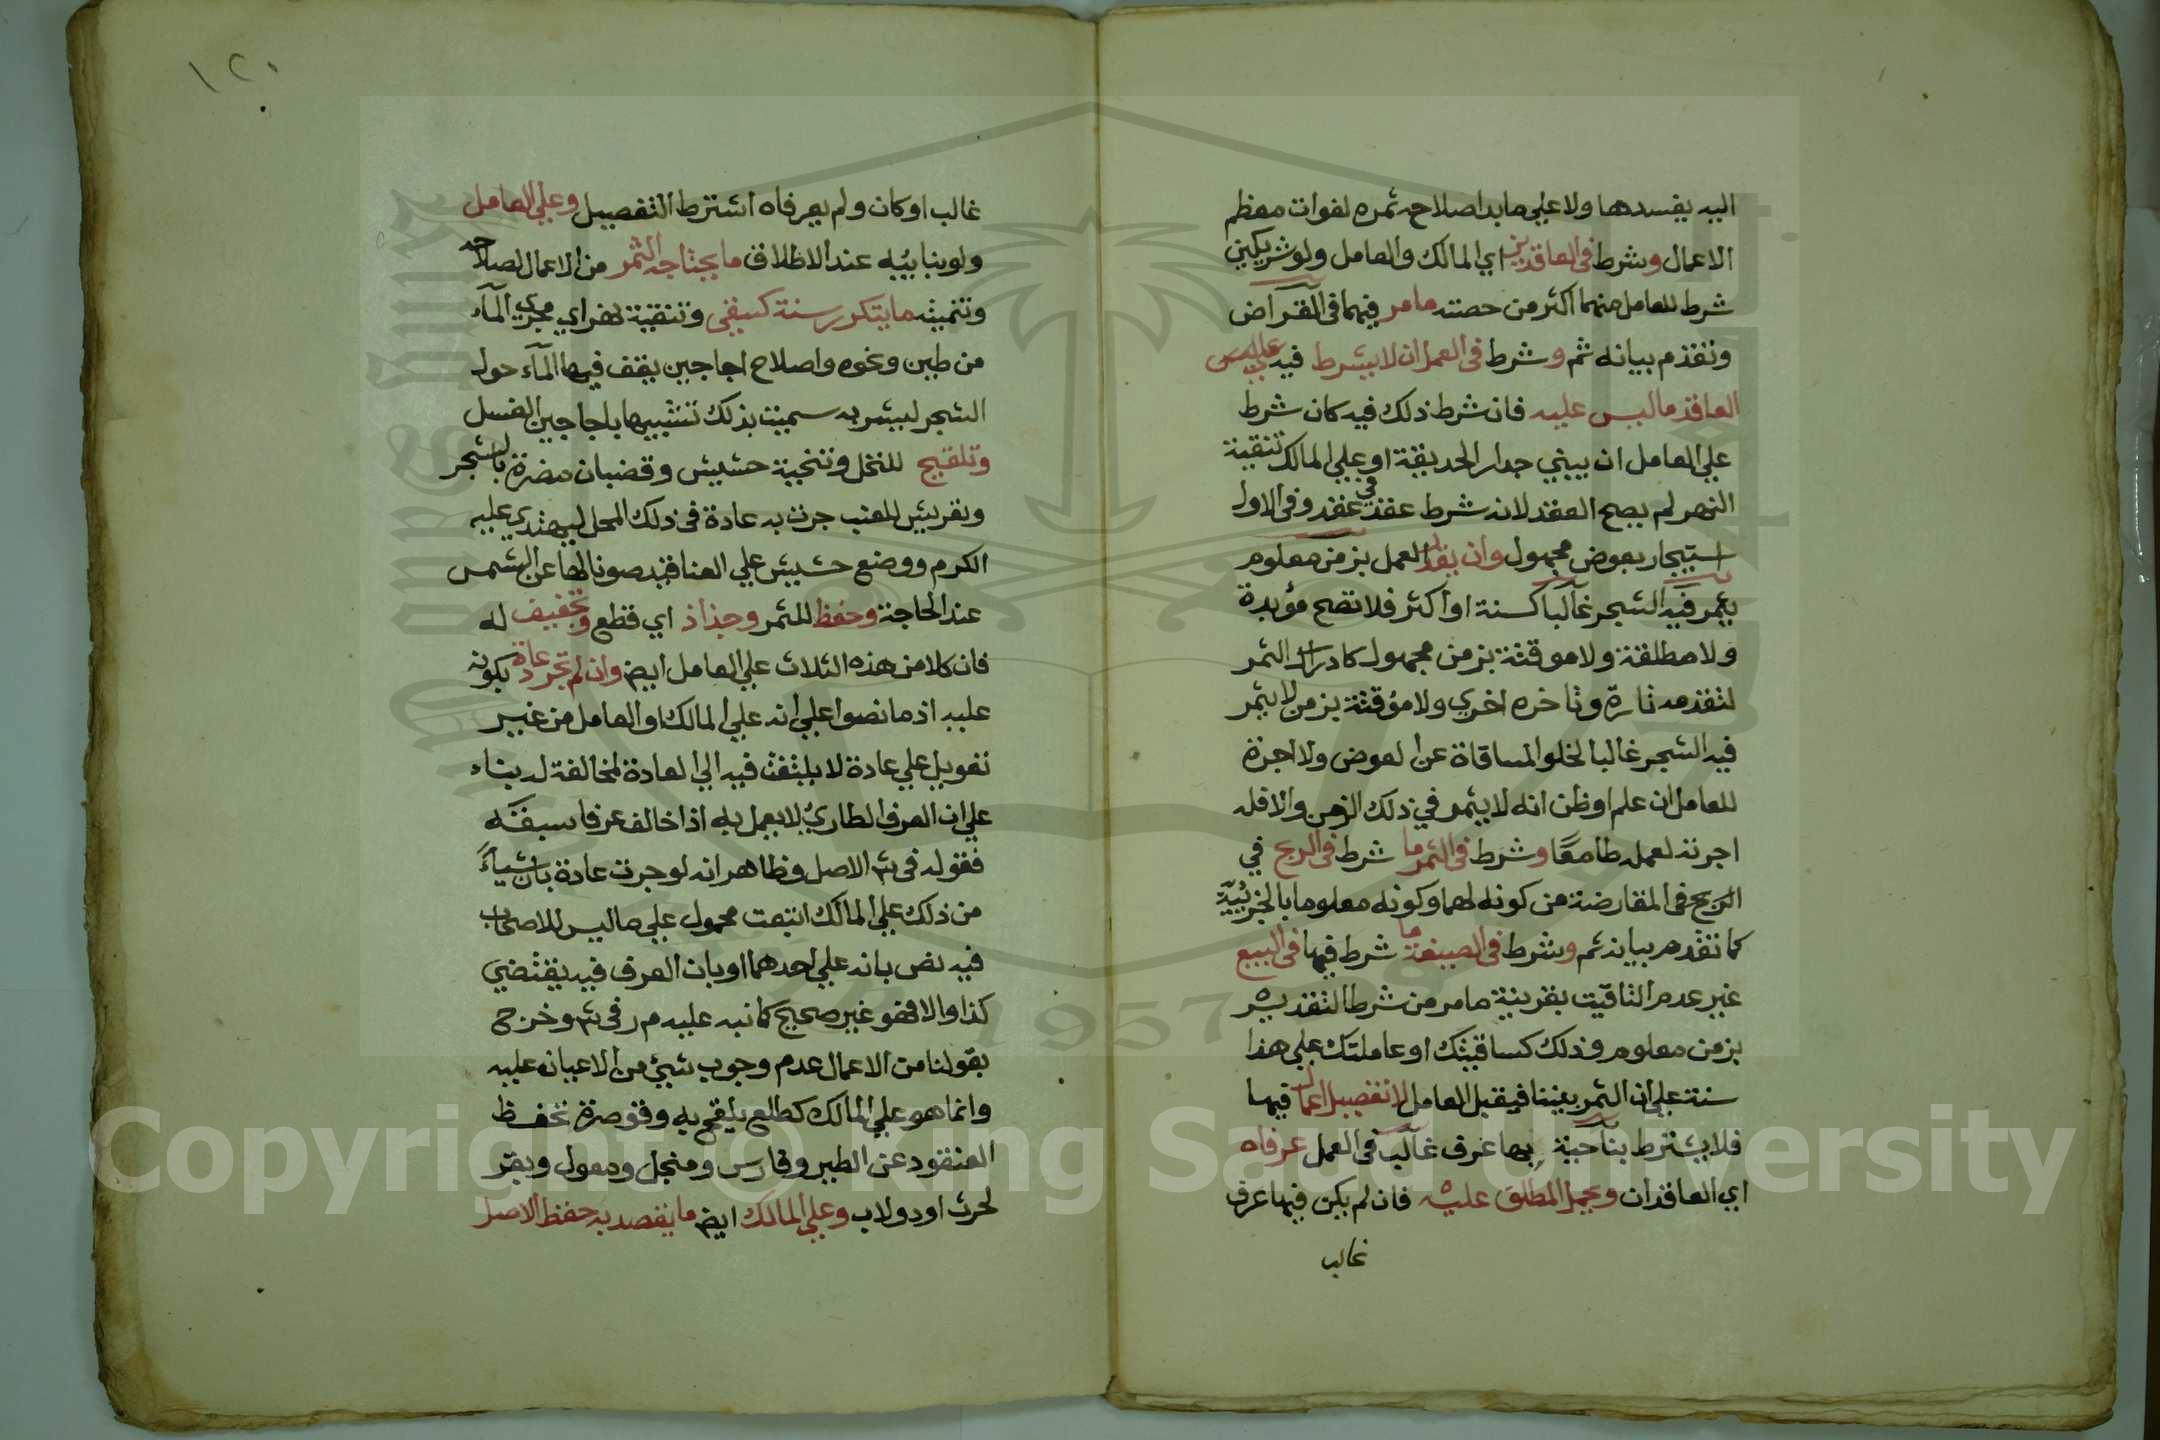 اليه يفسدها ولا علي ما بدا صلاحه ثمره لفوات معظم
الاعمال وشرط في العاقدين اي المالك والعامل ولو شريكين
شرط للعامل منهما اكثر من حصته ما مر فيهما في القراض
وتقدم بيانه ثم وشرط في العمل ان لا يشرط فيه علي
العاقد ما ليس عليه فان شرط ذلك فيه كان شرط
علي العامل ان يبني جدار الحديقة او علي المالك تنقية
النهر لم يصح العقد لانه شرط عقد في عقد وفي الاول
استيجار بعوض مجهول وان يقدر العمل بزمن معلوم
يثمر فيه الشجر غالبا كسنة او اكثر فلا تصح مؤبدة
ولا مطلقة ولا موقتة بزمن مجهول كادراك الثمر
لتقدمه تارة وتاخره اخري ولا مؤقتة بزمن لا يثمر
فيه الشجر غالبا لخلو المساقاة عن العوض ولا اجرة
للعامل ان علم او ظن انه لا يثمر في ذلك الزمن والا فله
اجرته لعمله طامعا وشرط في الثمر ما شرط في الربح في
الربح في المقارضة من كونه لهما وكونه معلوما بالجزئية
كما تقدم بيانه ثم وشرط في الصيغة ما شرط فيها في البيع
غير عدم التاقيت بقرينة ما مر من شرط التقدير
بزمن معلوم وذلك كساقيتك او عاملتك علي هذا
سنة علي ان الثمر بيننا فيقبل العامل لا تفصيل اعمال فيها
فلا يشترط بناحية بها عرف غالب في العمل عرفاه
اي العاقدان وبحمل المطلق عليه فان لم يكن فيها عرف
غالب
١٢٠
غالب او كان ولم يعرفاه اشترط التفصيل وعلي العامل
ولو بنايبه عند الاطلاق ما يحتاجه الثمر من الاعمال لصلاحه
وتنميته مما يتكرر سنة كسقي وتنقية نهر اي مجري الماء
من طين ونحوه واصلاح اجاجين يقف فيها الماء حول
الشجر ليشربه سميت بذلك تشبيها باجاجين الغسل
وتلقيح للنخل وتنحية حشيش وقضبان مضرة بالشجر
وتعريش للعنب جرت به عادة في ذلك المحل ليمتد عليه
الكرم ووضع حشيش علي العناقيد صونا لها عن الشمس
عند الحاجة وحفظ للثمر وجذاذ اي قطع وتجفيف له
فان كلا من هذه الثلاث علي العامل ايض وان لم تجر عادة بكونه
عليه اذ ما نصوا علي انه علي المالك او العامل من غير
تعويل علي عادة لا يلتفت فيه الي العادة لمخالفة له بناء
علي ان العرف الطاريء لا يعمل به اذا خالف عرفا سبقه
فقوله في شم الاصل وظاهر انه لو جرت عادة بان شيأ
من ذلك علي المالك اتبعت محمول علي ما ليس للاصحاب
فيه نص بانه علي احدهما او بان العرف فيه يقتضي
كذا والا فهو غير صحيح كما نبه عليه م ر في شم وخرج
بقولنا من الاعمال عدم وجوب شيء من الاعيان عليه
وانما هو علي المالك كطلع يلقح به وقوصرة تحفظ
العنقود عن الطير وفارس ومنجل ومعول وبقر
لحرث او دولاب وعلي المالك ايض ما يقصد به حفظ الاصل
Copyright © King Saud University
1957